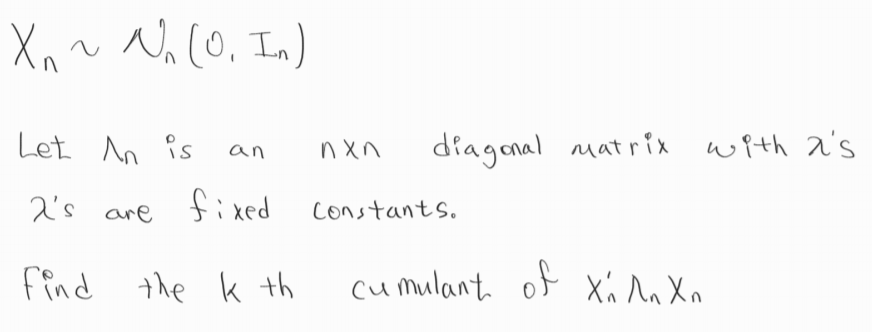 Xₙ ~ Nₙ(0, Iₙ)
Let Λₙ is an n×n diagonal matrix with λ's
λ's are fixed constants.
Find the k th cumulant of Xₙ' Λₙ Xₙ